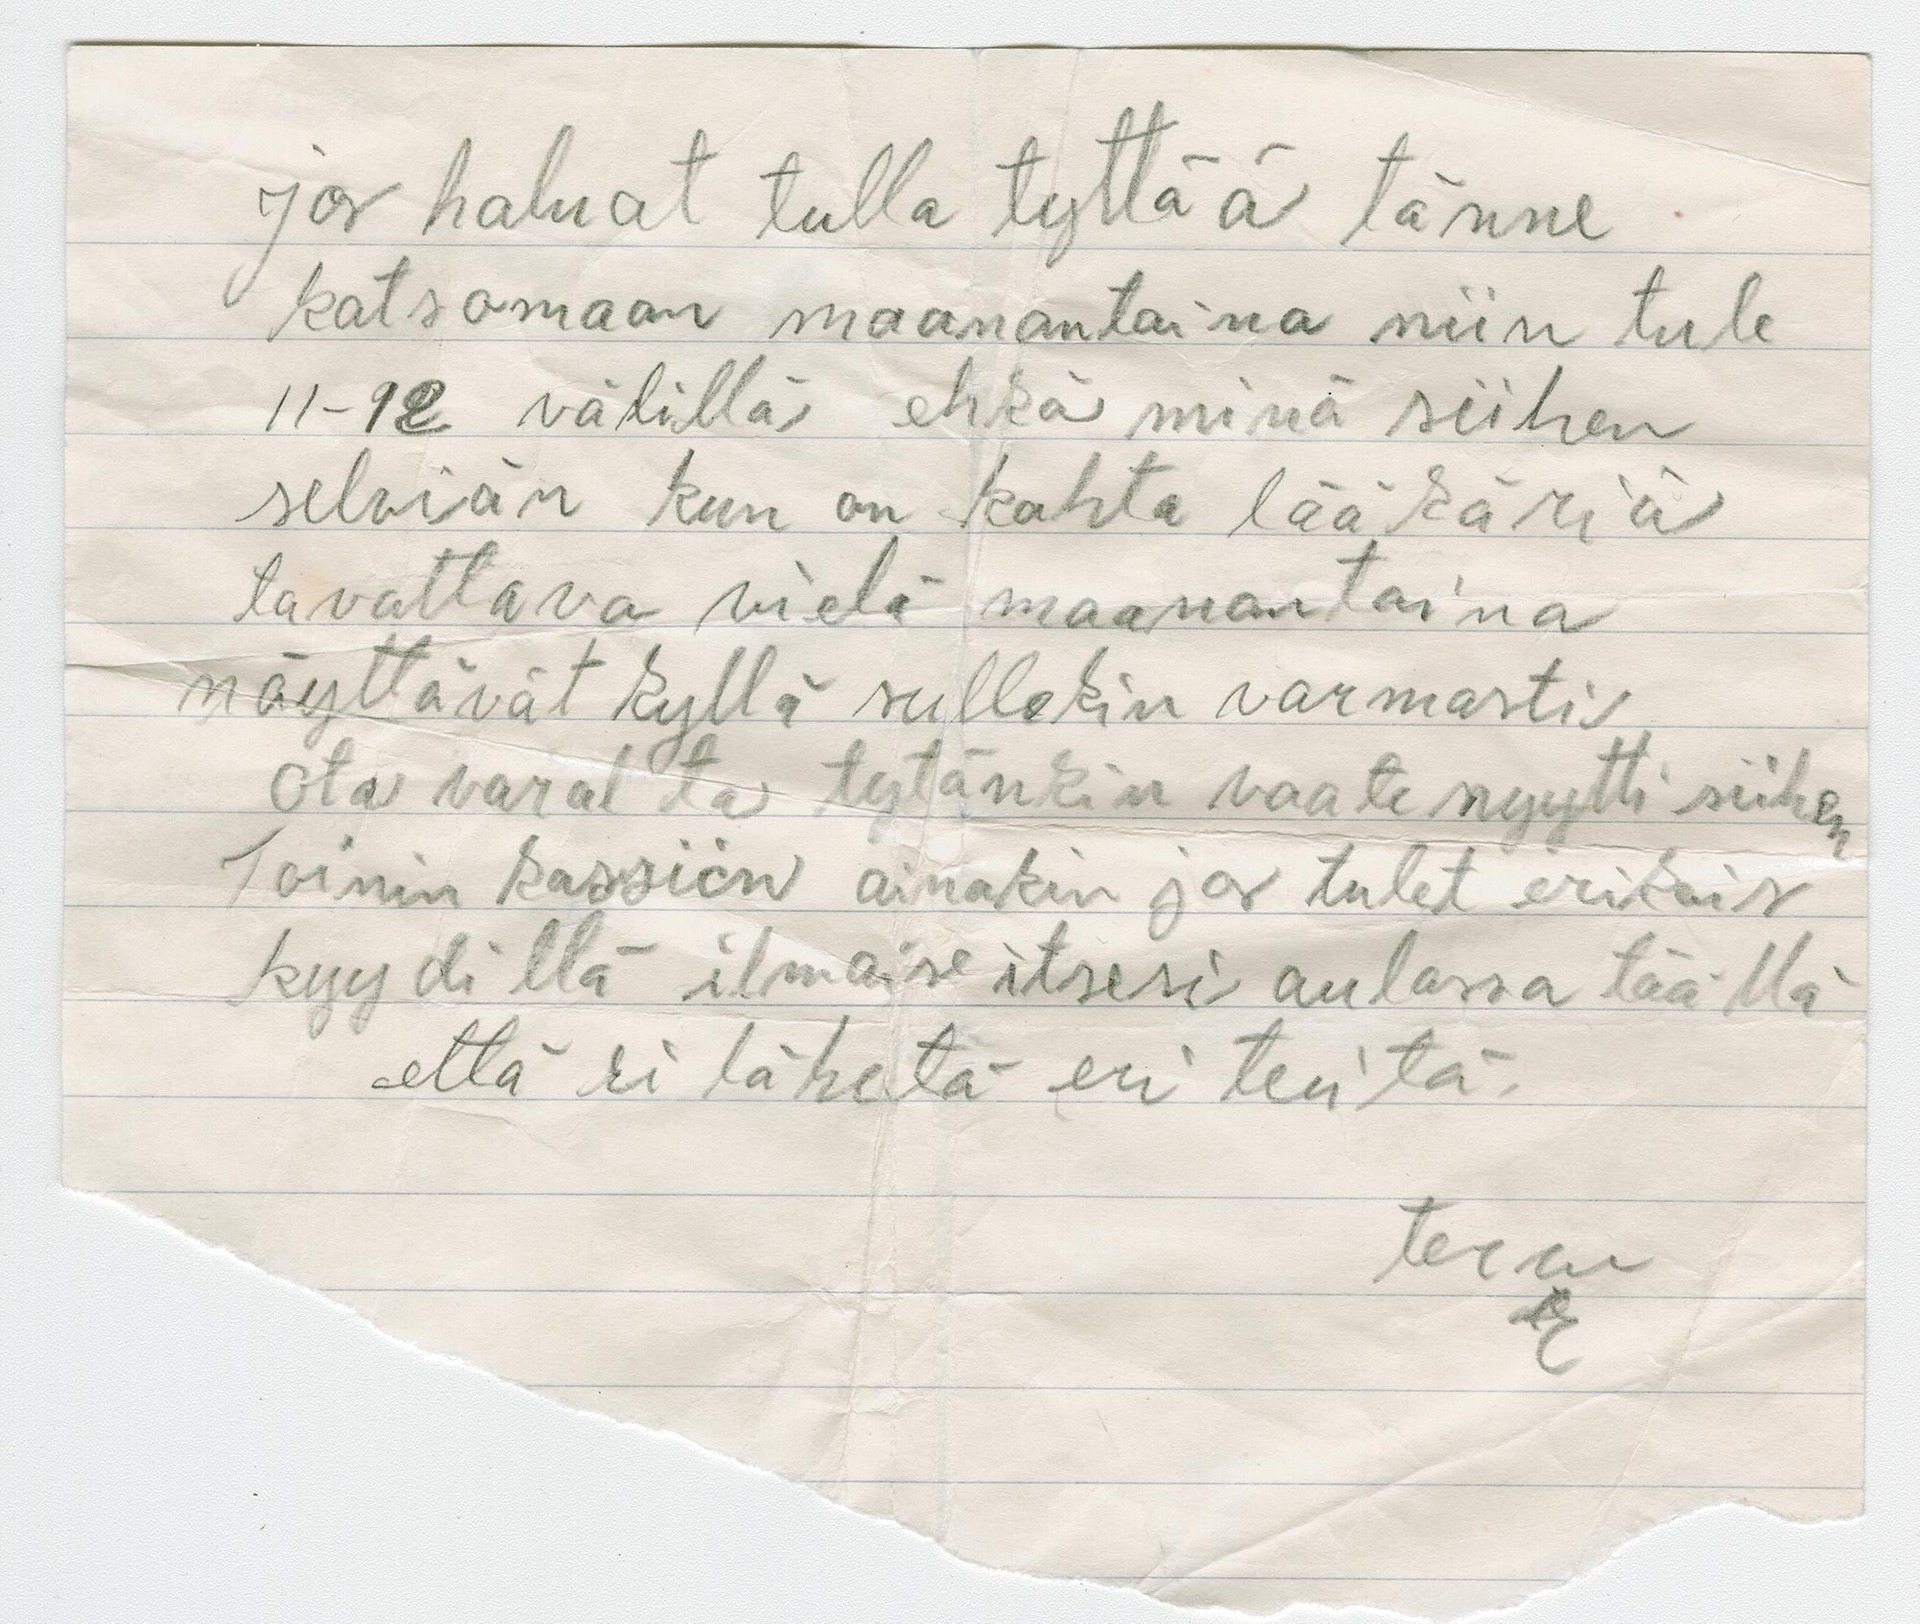 jos haluat tulla tyttää tänne
katsomaan maanantaina niin tule
11-12 välillä ehkä minä siihen
selviän kun on kahta lääkäriä
tavattava vielä maanantaina
näyttävät kyllä sullekin varmasti
ota varalta tytänkin vaate nyytti siihen
Toinin kassiin ainakin jos tulet erikois
kyydillä ilmaise itsesi aulassa täällä
että ei lähetä eri teitä.
terv